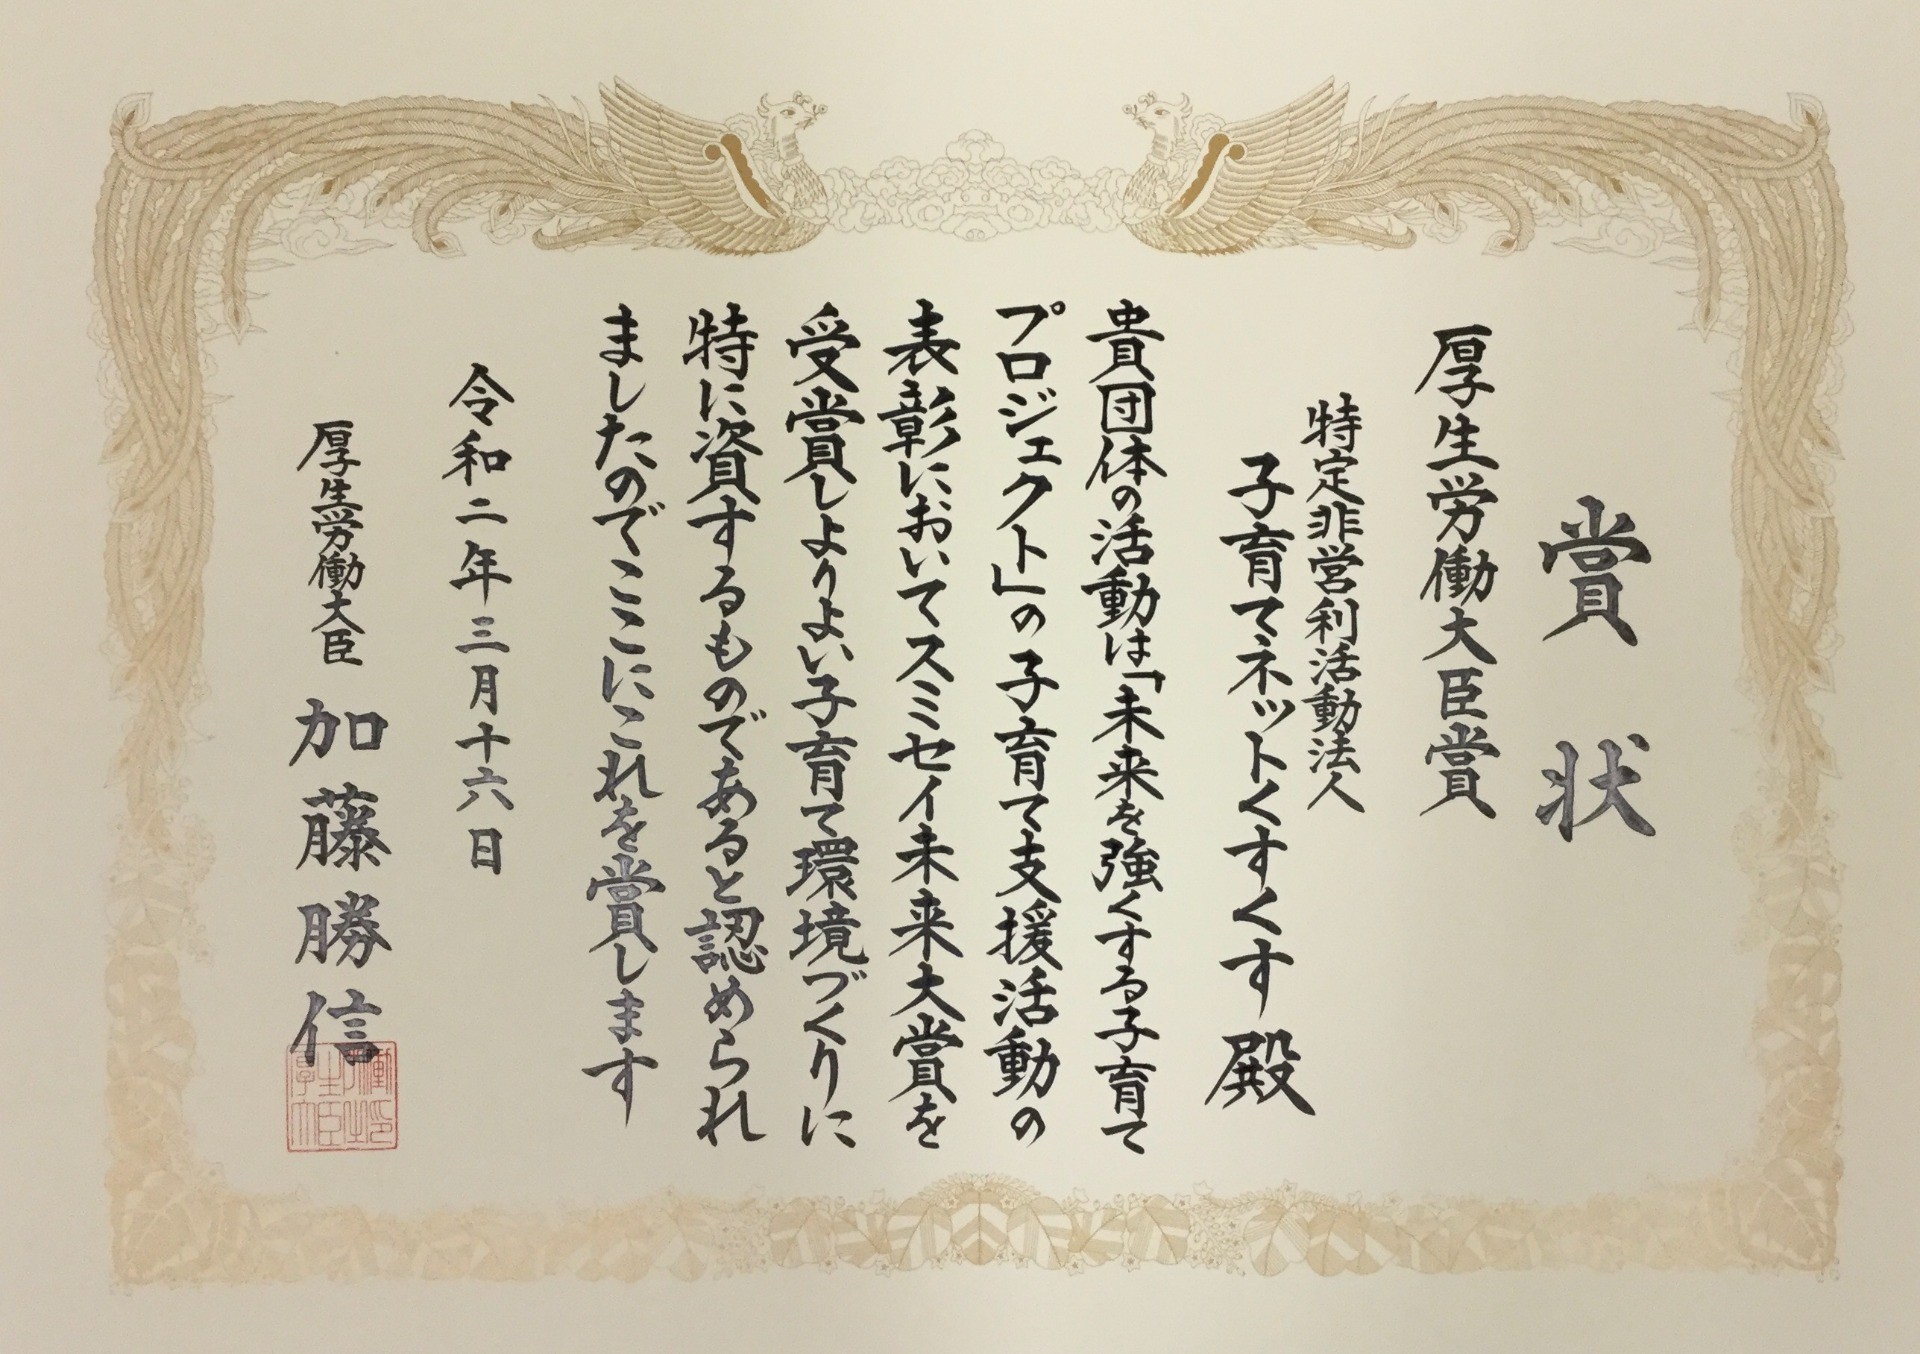 賞状
厚生労働大臣賞
特定非営利活動法人
子育てネットくすくす殿
貴団体の活動は「未来を強くする子育て
プロジェクト」の子育て支援活動の
表彰においてスミセイ未来大賞を
受賞しよりよい子育て環境づくりに
特に資するものであると認められ
ましたのでここにこれを賞します
令和二年三月十六日
厚生労働大臣 加藤勝信